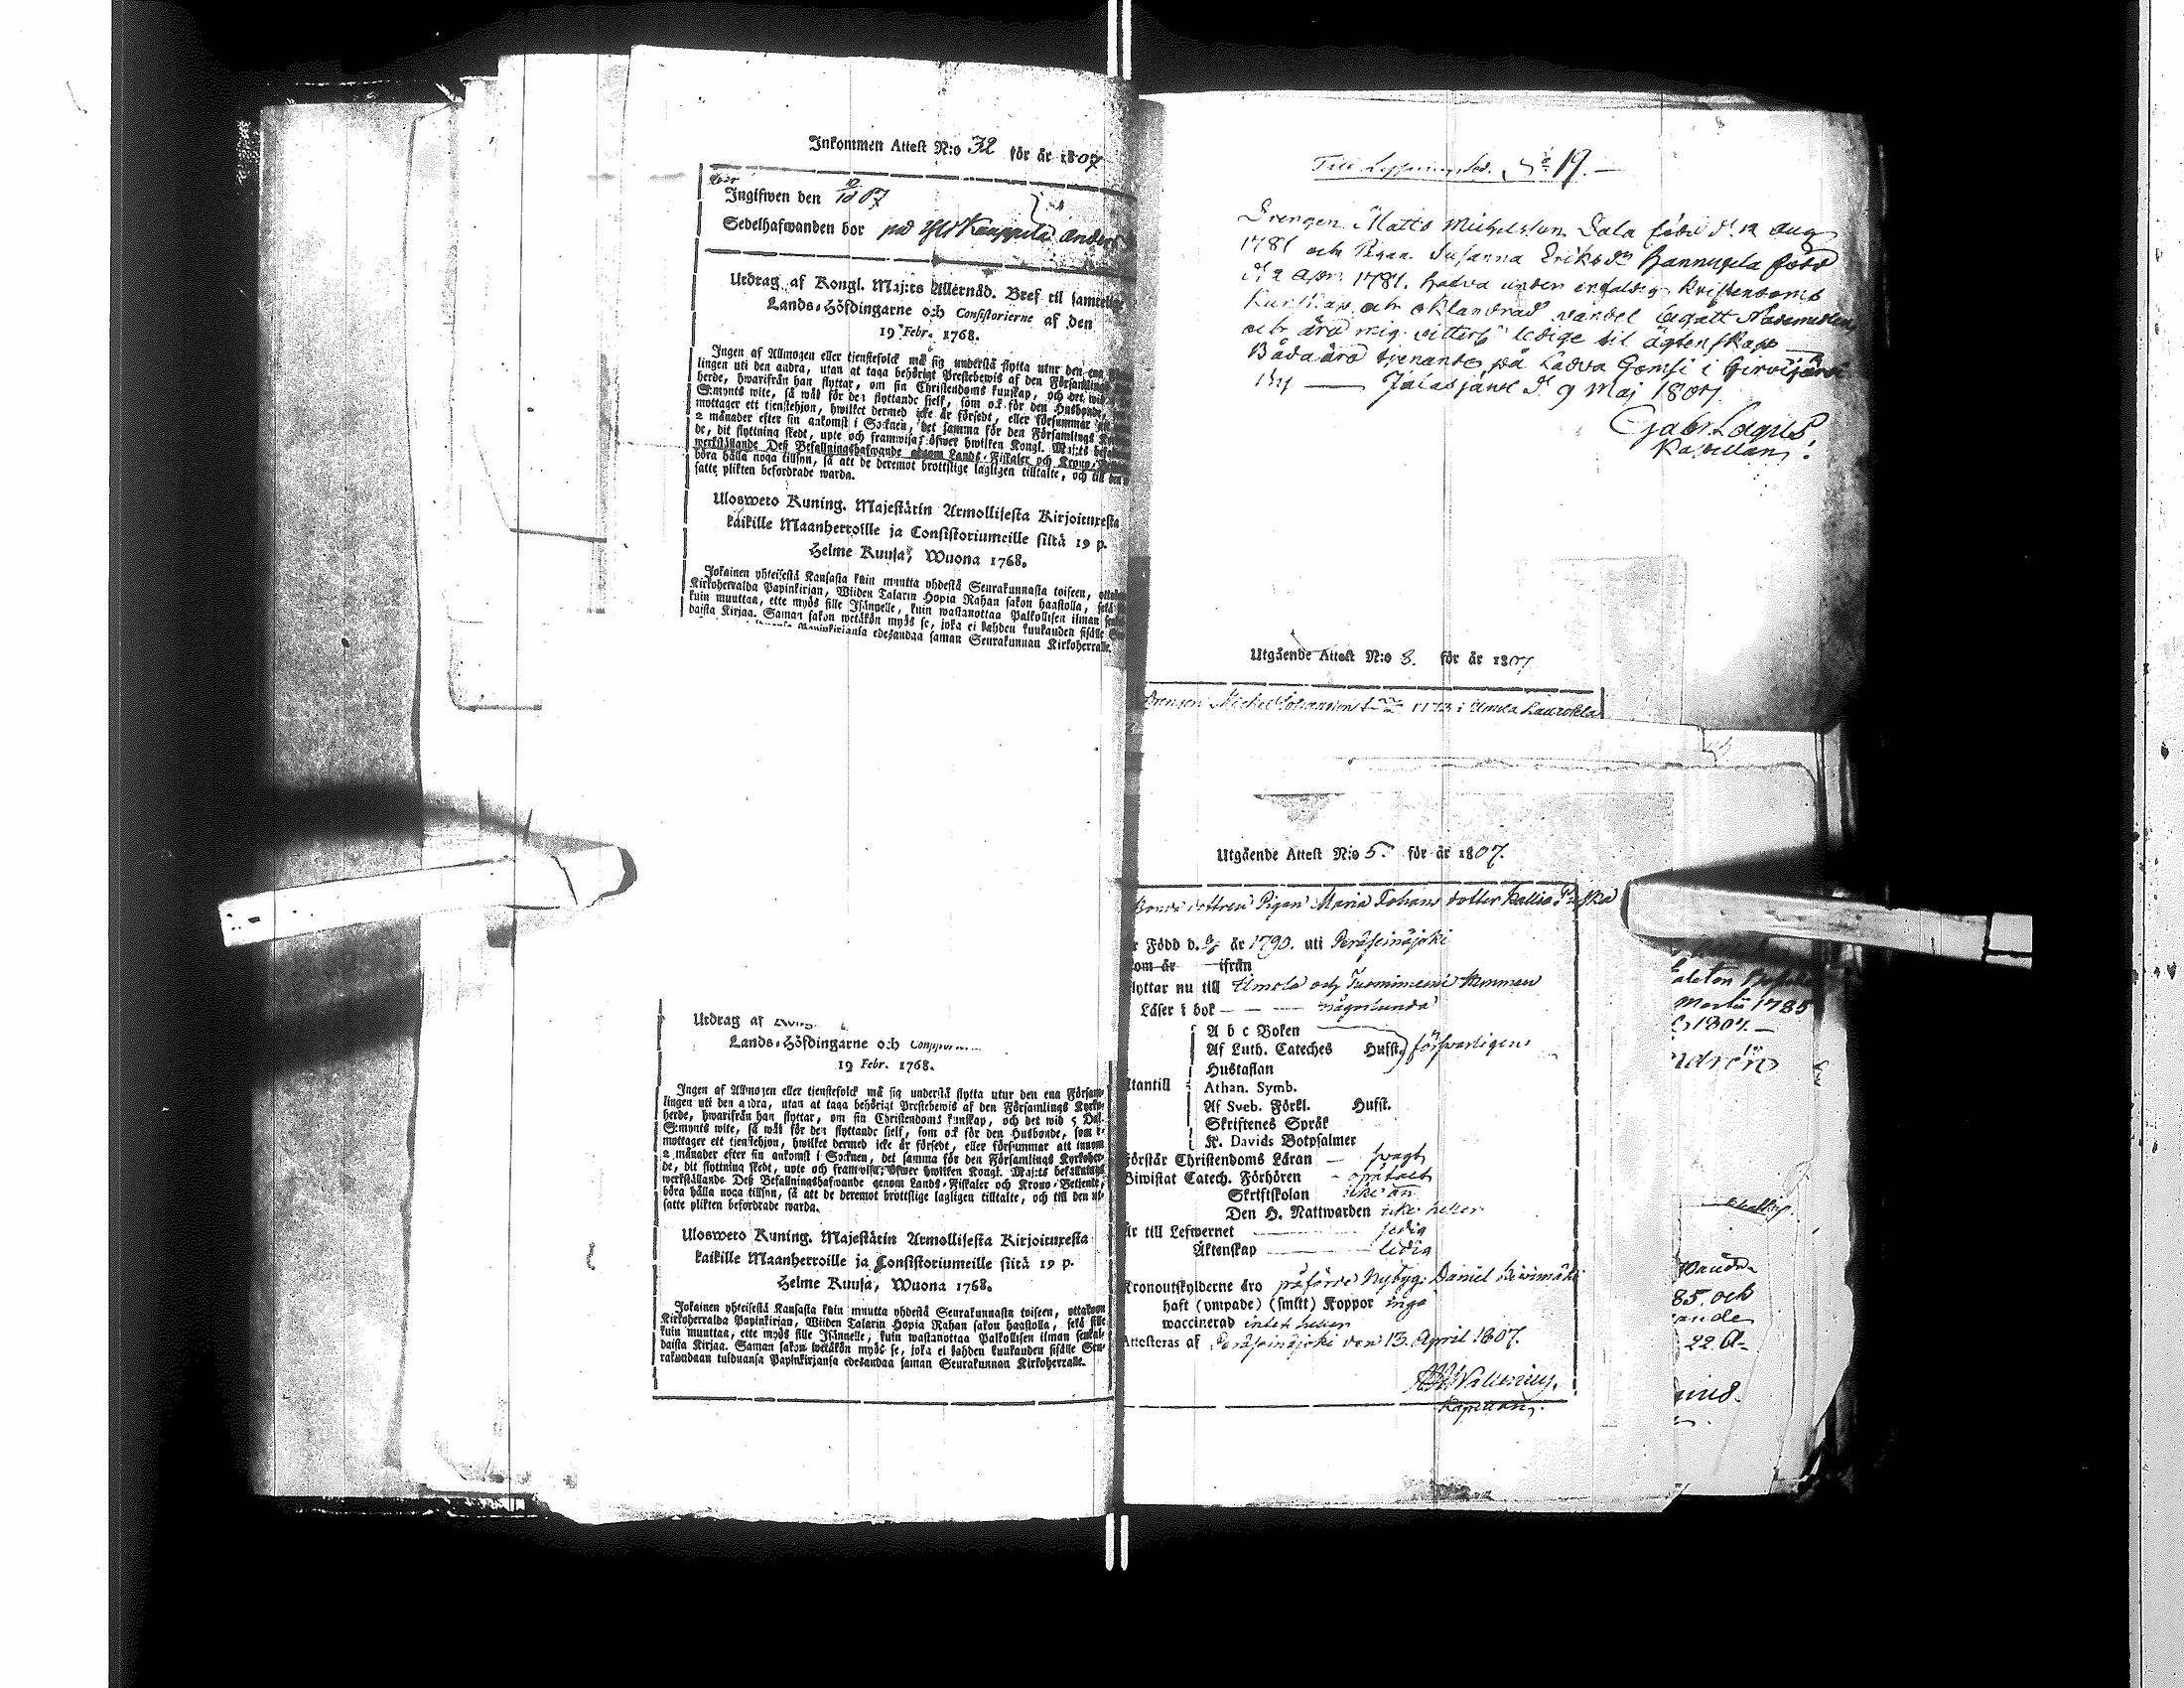 Inkommen Attest N:o 32 för är 1807
Ingifwen den
Sedelhafwanden bor på Kauppila Anders
Utdrag af Kongl. Maj:ts Allernåd. Bref til samtelige
Lands-Höfdingarne och Consistorierne af den
19 Febr. 1768.
Ingen af Allmogen eller tjenstefolck må sig understå flytta utur den ena
lingen uti den andra, utan at taga behörigt Prestebewis af den Församlings
herde, hwarifrån han flyttar, om sin Christendoms kunskap, och det wid
S:mynts wite, så wäl för den flyttande sielf, som ock för den Husbonde,
mottager ett tjenstehjon, hwilket dermed icke är försedt, eller försummar
2 månader efter sin ankomst i Socknen, det samma för den Församlings
de, dit flyttning skedt, upte och framwisa; öfwer hwilken Kongl. Maj:ts
werkställande Deß Befallningshafwande genom Lands-Fiskaler och Krono-
böra hålla noga tillsyn, så att de deremot brottslige lagligen tilltalte, och till den
satte plikten befordrade warda.
Ulosweto Kuning. Majestätin Armollisesta Kirjoituxesta
kaikille Maanherroille ja Consistoriumeille siitä 19 p.
Helme Kuusa, Wuona 1768.
Jokainen yhteisestä Kansasta kuin muutta yhdestä Seurakunnasta toiseen,
Kirkoherralda Papinkirjan, Wiiden Talarin Hopia Rahan sakon haastolla, sekä
kuin muuttaa, ette myös sille Isännelle, kuin wastanottaa Palkollisen ilman
daista Kirjaa. Saman sakon wetäkön myös se, joka ei kahden kuukauden sisälle
Papinkirjansa edesandaa saman Seurakunnan Kirkoherralle.
Utdrag af Kongl.
Lands-Höfdingarne och
19 Febr. 1768.
Ingen af Allmogen eller tjenstefolck må sig understå flytta utur den ena Försam-
lingen uti den andra, utan at taga behörigt Prestebewis af den Församlings Kyrko-
herde, hwarifrån han flyttar, om sin Christendoms kunskap, och det wid 5 Dal.
S:mynts wite, så wäl för den flyttande sielf, som ock för den Husbonde, som e-
mottager ett tjenstehjon, hwilket dermed icke är försedt, eller försummar att innom
2 månader efter sin ankomst i Socknen, det samma för den Församlings Kyrkoher-
de, dit flyttning skedt, upte och framwisa; öfwer hwilken Kongl. Maj:ts befallnings
werkställande Deß Befallningshafwande genom Lands-Fiskaler och Krono-Betjente,
böra hålla noga tillsyn, så att de deremot brottslige lagligen tilltalte, och till den ut-
satte plikten befordrade warda.
Ulosweto Kuning. Majestätin Armollisesta Kirjoituxesta
kaikille Maanherroille ja Consistoriumeille siitä 19 p.
Helme Kuusa, Wuona 1768.
Jokainen yhteisestä Kansasta kuin muutta yhdestä Seurakunnasta toiseen, ottakoon
Kirkoherralda Papinkirjan, Wiiden Talarin Hopia Rahan sakon haastolla, sekä sille
kuin muuttaa, ette myös sille Isännelle, kuin wastanottaa Palkollisen ilman senkal-
daista Kirjaa. Saman sakon wetäkön myös se, joka ei kahden kuukauden sisälle Seu-
rakundaan tulduansa Papinkirjansa edesandaa saman Seurakunnan Kirkoherralle.
Till Lysningssed. No 19.
Drengen Matts Michelsson Dala född d. 12 Aug
1781 och Pigan Susanna Eriksdr Hannugela född
d. 2 Apr. 1781. hafva under enfaldig Kristendoms
Kunskap och oklandrad vandel begått Nademedlen
och äro mig vitterl. ledige til ägtenskap
Båda äro tjenande på Ladva Gomsi i Hirvijärvi
by — Jalasjärvi d. 9 Maj 1807.
Gabr. Lagus
Kapellan.
Utgående Attest N:o 8. för är 1807
Drengen Michel Johansson
Utgående Attest N:o 5. för är 1807.
Bonde dottren Pigan Maria Johans dotter Kallio
är Född d. år 1790. uti Peräseinäjoki
som är ifrån
flyttar nu till Ilmola och Tuominiemi hemman
Läser i bok — någorlunda
A b c Boken
Af Luth. Cateches Hufst. försvarligen
Hustaflan
Utantill Athan. Symb.
Af Sveb. Förkl. Hufst.
Skriftenes Språk
K. Davids Botpsalmer
Förstår Christendoms Läran — svagt
Biwistat Catech. Förhören — opåtalt
Skriftskolan icke än
Den H. Nattwarden icke heller
Är till Lefwernet — ledig
Äktenskap — ledig
Kronoutskylderne äro påförde Nybygg. Daniel Kiwimäki
haft (ympade) (smitt) Koppor inga
waccinerad intet heller
Attesteras af Peräseinäjoki den 13. April 1807.
Kapellan.
Martii 1785
1807.
85. och
22